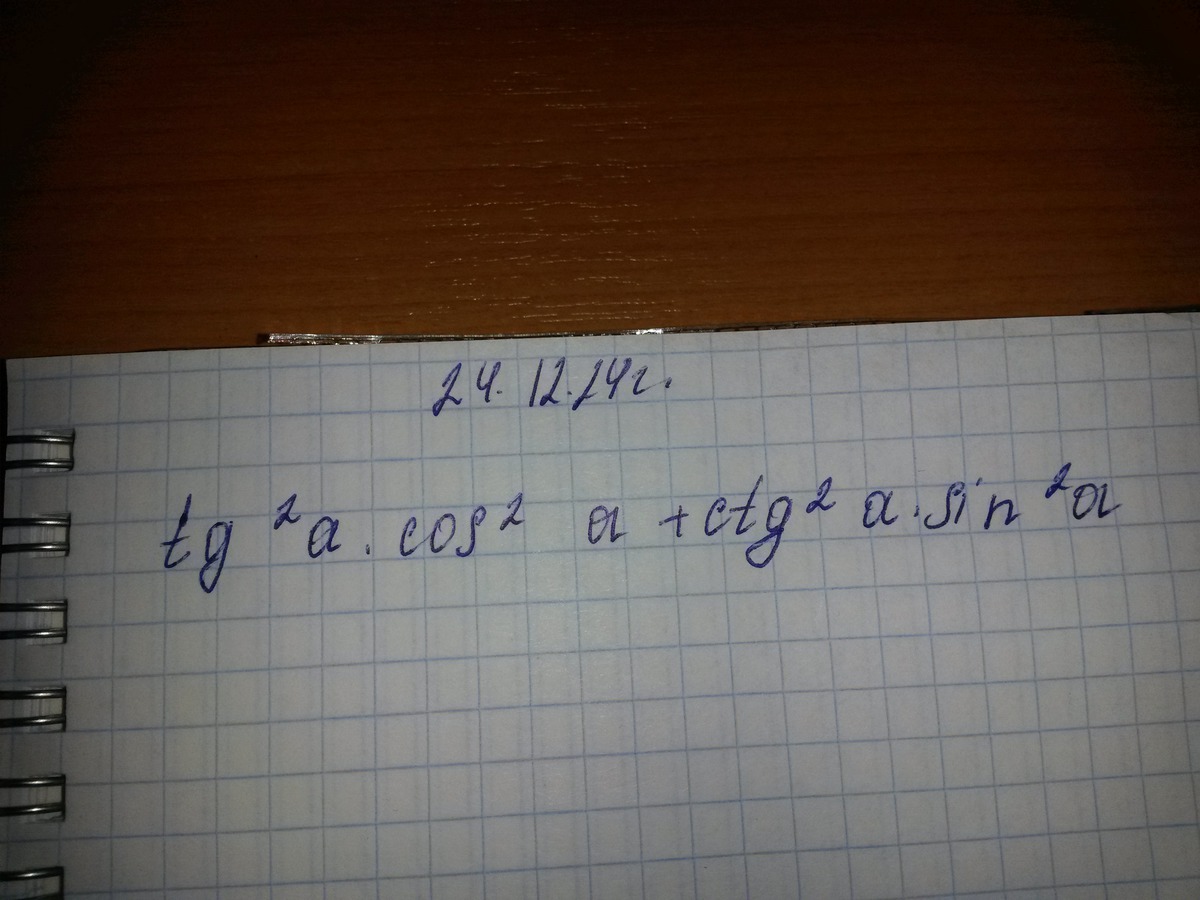 24.12.24г.
tg ²a . cos² a + ctg² a . sin ²a